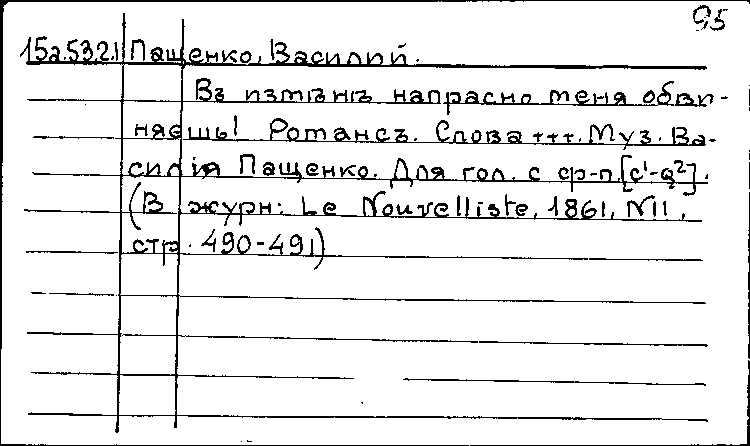 95
15а.53.2.1 Пащенко, Василий.
Въ измѣнѣ напрасно меня обви-
няешь! Романсъ. Слова +++. Муз. Ва-
силія Пащенко. Для гол. с ф-п. [c¹-g²].
(В журн: Le Nouvelliste, 1861, N11,
стр. 490-491)